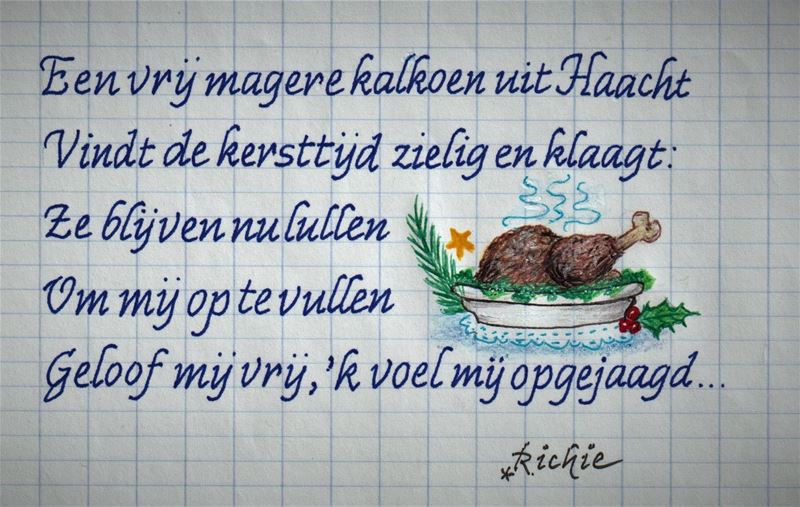 Een vrij magere kalkoen uit Haacht
Vindt de kersttijd zielig en klaagt:
Ze blijven nu lullen
Om mij op te vullen
Geloof mij vrij, 'k voel mij opgejaagd...
*Richie